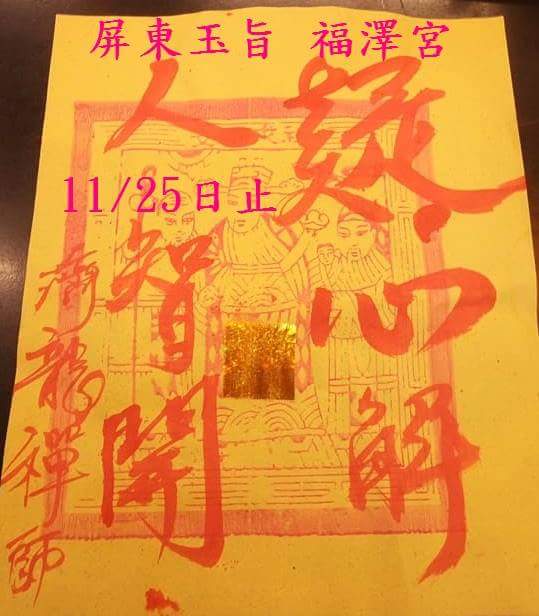 屏東玉旨 福澤宮
11/25日止
疑心解
人智開
龍禪師